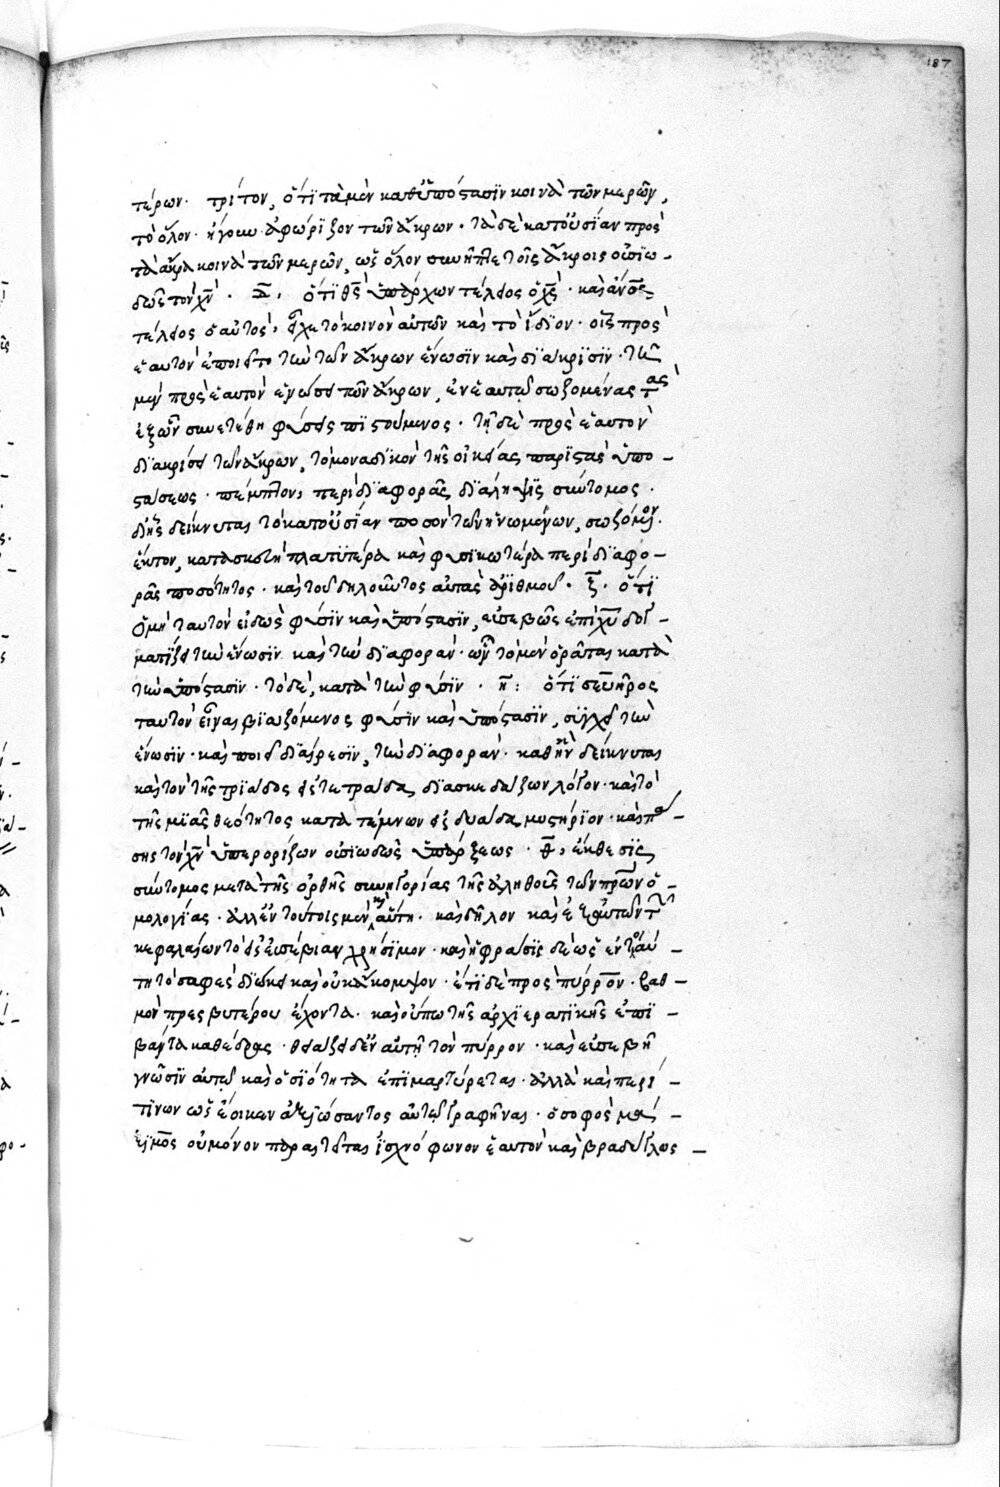 187
τέρων· τρίτον, ὅτι τὰ μὲν καθ' ὑπόστασιν κοινὰ τῶν μερῶν,
τὸ ὅλον· ἤγουν ἀφώριζον τῶν ἄκρων· τὰ δὲ κατ' οὐσίαν πρὸς
τὰ ἄκρα κοινὰ τῶν μερῶν, ὡς ὅλον συνῆπτε τοῖς ἄκροις οὐσιω –
δῶς τὸν χν̄· δ̄, ὅτι θς̄ ὑπάρχων τέλειος ὁ χς̄· καὶ ἄνος̄
τέλειος ὁ αὐτός, εἶχε τὸ κοινὸν αὐτῶν καὶ τὸ ἴδιον· οἷς πρὸς
ἑαυτὸν ἐποιεῖτο τὴν τῶν ἄκρων ἕνωσιν καὶ διάκρισιν· τῇ
μὲν πρὸς ἑαυτὸν ἑνώσει τῶν ἄκρων, ἐν ἑαυτῷ σωζομένας τὰς
ἐξ ὧν συνετέθη φύσεις πιστούμενος· τῇ δὲ πρὸς ἑαυτὸν
διακρίσει τῶν ἄκρων, τὸ μοναδικὸν τῆς οἰκείας παριστὰς ὑπο –
στάσεως· πέμπτον, περὶ διαφορᾶς διάληψις σύντομος·
δι' ἧς δείκνυται τὸ κατ' οὐσίαν ποσὸν τῶν ἡνωμένων, σωζόμενον·
ἕκτον, κατασκευὴ πλατυτέρα καὶ φυσικωτέρα περὶ διαφο –
ρᾶς ποσότητος· καὶ τοῦ δηλοῦντος αὐτὰς ἀριθμοῦ· ζ̄· ὅτι
ὁ μὴ ταυτὸν εἰδὼς φύσιν καὶ ὑπόστασιν, εὐσεβῶς ἐπὶ χῡ δογ –
ματίζει τὴν ἕνωσιν καὶ τὴν διαφοράν· ὧν τὸ μὲν ὁρᾶται κατὰ
τὴν ὑπόστασιν· τὸ δὲ, κατὰ τὴν φύσιν· η̄: ὅτι σευῆρος
ταυτὸν εἶναι βιαζόμενος φύσιν καὶ ὑπόστασιν, συγχεῖ τὴν
ἕνωσιν· καὶ ποιεῖ διαίρεσιν, τὴν διαφοράν· καθ' ἣν δείκνυται
καὶ τὸν τῆς τριάδος εἰς τετράδα διασκεδάζων λόγον· καὶ τὸ
τῆς μιᾶς θεότητος κατατέμνων εἰς δυάδα μυστήριον· καὶ πά –
σης τὸν χν̄ ὑπερορίζων οὐσιωδῶς ὑπάρξεως· θ̄, ἔκθεσις
σύντομος μετὰ τῆς ὀρθῆς συνηγορίας τῆς ἀληθοῦς τῶν πρων̄ ὁ –
μολογίας· ἀλλ' ἐν τούτοις μὲν ἡ αὕτη· καὶ δῆλον καὶ ἐξ αὐτῶν τῶν
κεφαλαίων τὸ εἰς εὐσέβειαν χρήσιμον· καὶ ἡ φράσις δὲ ὡς ἐν τοιαύ –
τῃ τὸ σαφὲς διώκει καὶ οὐκ ἄκομψον· ἔτι δὲ πρὸς πύρρον· βαθ –
μὸν πρεσβυτέρου ἔχοντα· καὶ οὔπω τῆς ἀρχιερατικῆς ἐπι –
βάντα καθέδρας· θειάζει δ' ἐν αὐτῇ τὸν πύρρον· καὶ εὐσεβῆ
γνῶσιν αὐτῷ καὶ ὁσιότητα ἐπιμαρτύρεται· ἀλλὰ καὶ περί –
τινων ὡς ἔοικεν ἀξιώσαντος αὐτῷ γραφῆναι· ὁ σοφὸς μά –
ξιμος οὐ μόνον παραιτεῖται ἰσχνόφωνον ἑαυτὸν καὶ βραδύγλως –